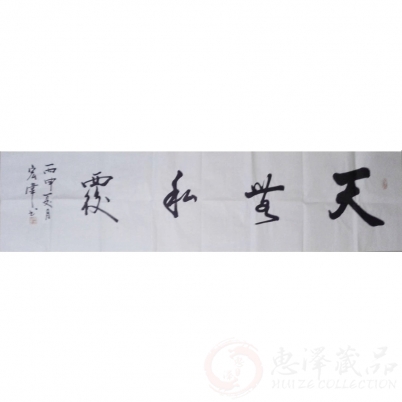 天無私覆
丙申夏月
惠澤藏品
HUIZE COLLECTION